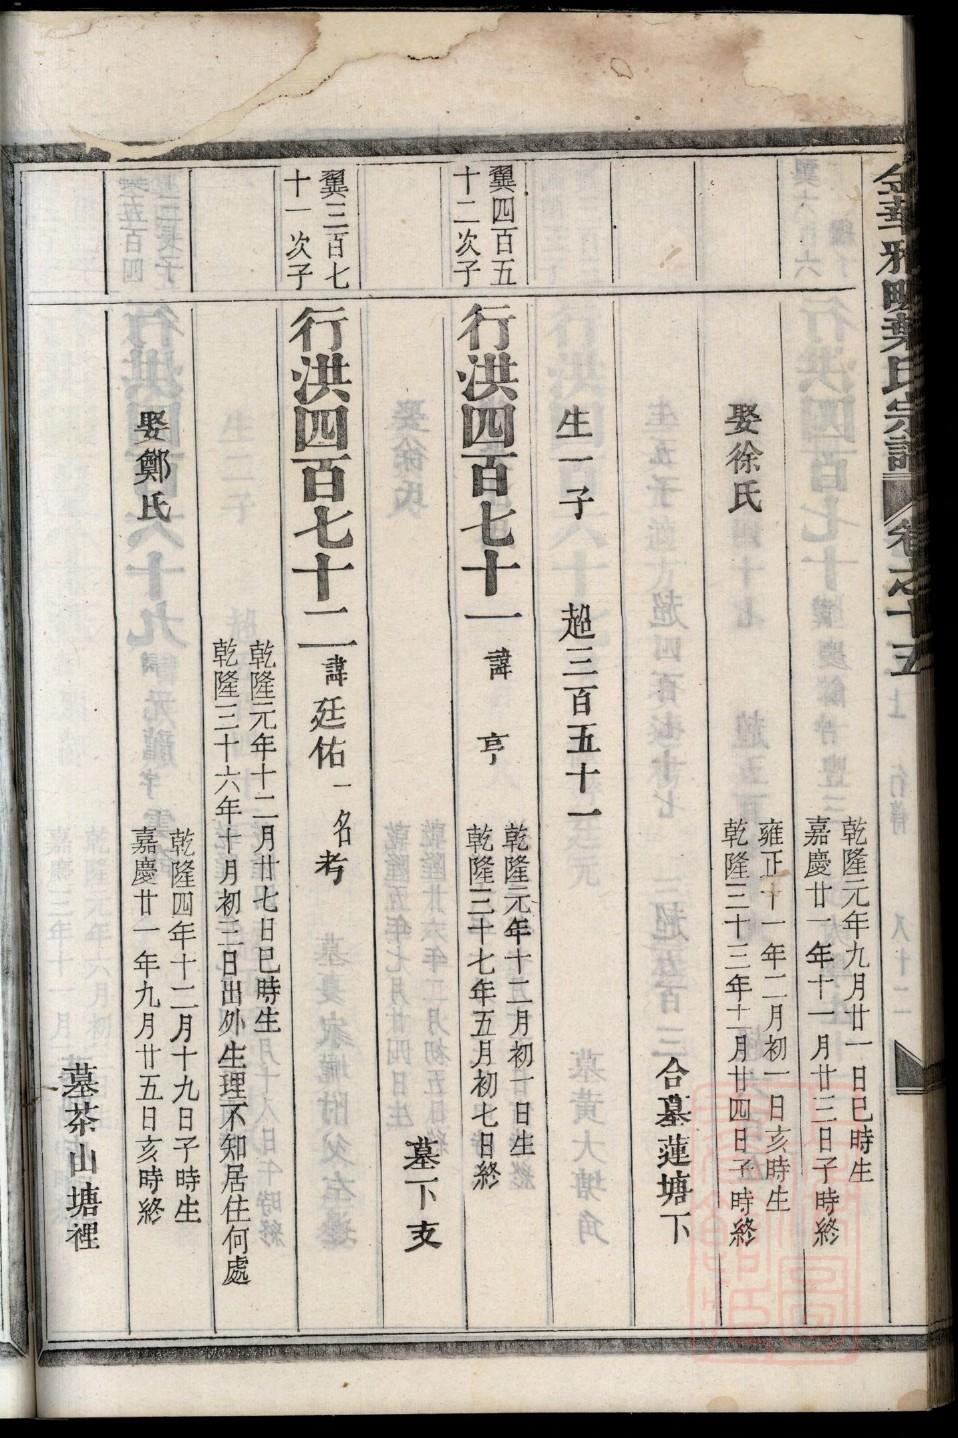 金華雅畈葉氏宗譜 卷之十五
乾隆元年九月廿一日巳時生
嘉慶廿一年十一月廿三日子時終
娶徐氏
雍正十一年二月初一日亥時生
乾隆三十三年十一月廿四日子時終
合墓蓮塘下
生一子 超三百五十一
翼四百五
十二次子
行洪四百七十一 諱亨
乾隆元年十二月初一日生
乾隆三十七年五月初七日終
墓下支
翼三百七
十一次子
行洪四百七十二 諱廷佑 一名考
乾隆元年十二月廿七日巳時生
乾隆三十六年十月初三日出外生理不知居住何處
娶鄭氏
乾隆四年十二月十九日子時生
嘉慶廿一年九月廿五日亥時終
墓茶山塘裡